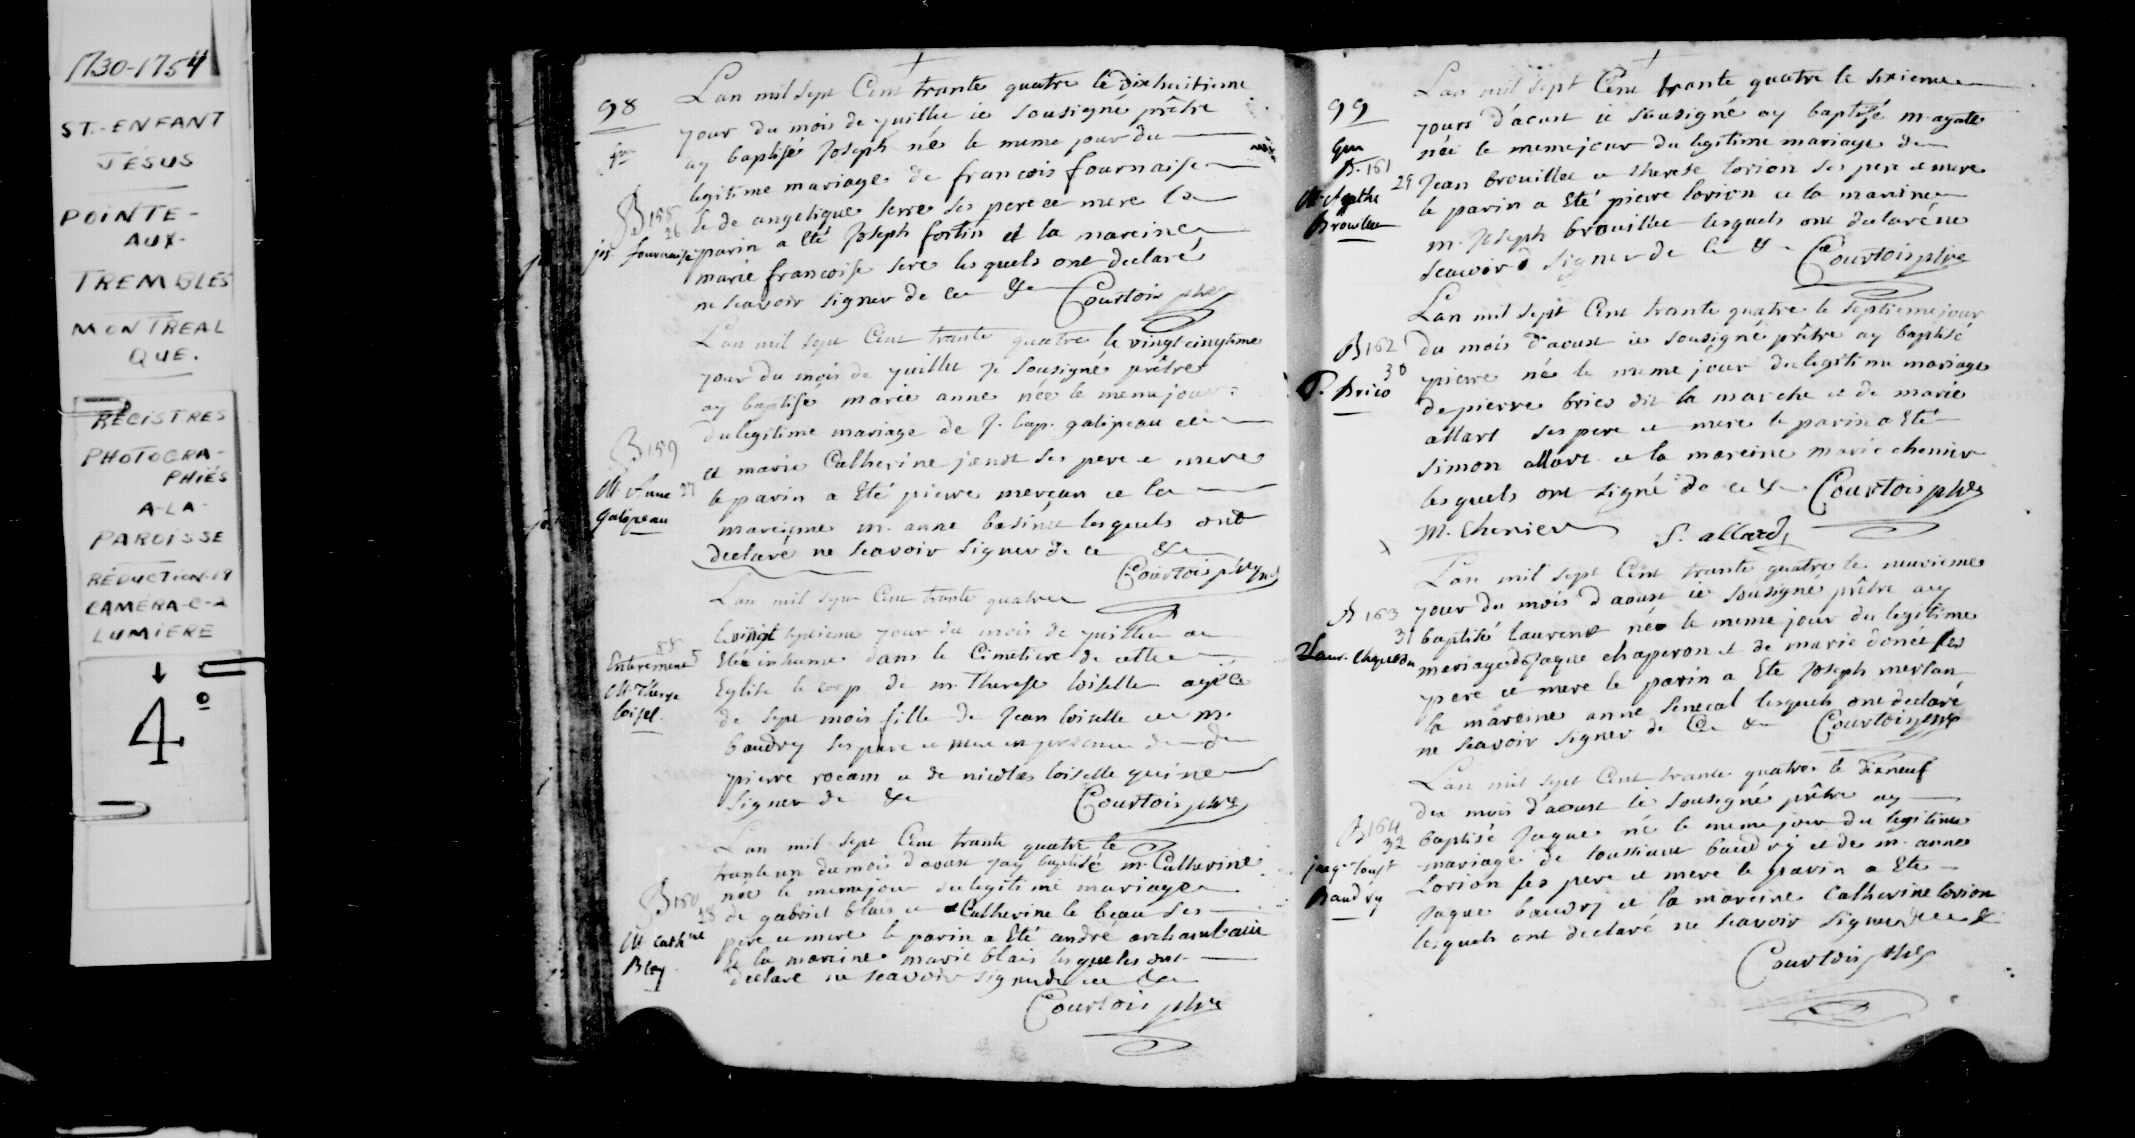 1730-1754
ST.-ENFANT
JÉSUS
POINTE-
AUX-
TREMBLES
MONTREAL
QUE.
RÉGISTRES
PHOTOGRA-
PHIÉS
A-LA-
PAROISSE
RÉDUCTION-19
CAMÉRA-C-2
LUMIÈRE
4º
98
Lan mil sept Cent trante quatre le dixhuitieme
jour du mois de juillet ie sousigné prêtre
ay baptisé Joseph né le meme jour du
legitime mariage de francois fournaise
B158
26
& de angelique serre ses pere et mere le
jos. fournaise
parin a Eté Joseph fortin et la mareine
marie francoise sere lesquels ont declaré
ne scavoir signer de ce &c Courtois ptre
Lan mil sept Cent trante quatre le vingtcinqtieme
jour du mois de juillet je sousigné prêtre
ay baptisé marie anne née le meme jour
du legitime mariage de J. bap. galipeau
B159
et marie Catherine janot ses pere et mere
M. Anne 27
Galipeau
le parin a Eté pierre et la
mareigne m. anne lesquels ont
declaré ne scavoir signer de ce &c
Courtois ptre
Lan mil sept Cent trante quatre
le vingt septieme jour du mois de juillet a
Enterement
Eté inhumé dans le Cimetiere de cette
M. Therese
Loisel.
Eglise le corp de m. Therese loiselle agée
de sept mois fille de Jean loiselle et m.
baudry ses pere et mere en presence de
pierre et de nicolas loiselle qui ne
signer de &c Courtois ptre
Lan mil sept Cent trante quatre le
trante un du mois daoust jay baptisé m. Catherine
née le meme jour du legitime mariage
B160
28
de gabriel blais et Catherine le beau ses
M. Cathne
Bley
pere et mere le parin a Eté andré archambault
& la mareine marie blais lesquels ont
declaré ne scavoir signer de ce &c
Courtois ptre
99
Lan mil sept Cent trante quatre le sixieme
jours d'acust ie sousigné ay baptisé m. agate
née le meme jour du legitime mariage de
B.161
29
Jean brouillet et therese lorion ses pere et mere
M. Agathe
Brouillet
le parin a Eté pierre lorion et la mareine
m. Joseph brouillet lesquels ont declaré ne
scavoir signer de ce & Courtois ptre
Lan mil sept Cent trante quatre le septieme jour
B162
du mois d'aoust ie sousigné prêtre ay baptisé
30
P. Brico
pierre né le meme jour du legitime mariage
de pierre brico dit la marche et de marie
allart ses pere et mere le parin a Eté
simon allart et la mareine marie chenier
lesquels ont signé de ce & Courtois ptre
M. Chenier S. allard
Lan mil sept Cent trante quatre le neuvieme
B163
jour du mois daoust ie sousigné prêtre ay
31
baptisé laurent né le meme jour du legitime
mariage de Jaque chaperon et de marie ses
pere et mere le parin a Eté Joseph merlan
la mareine anne senecal lesquels ont declaré
ne scavoir signer de Ce &c Courtois ptre
Lan mil sept Cent trante quatre le dixneuf
du mois d'aoust ie sousigné prêtre ay
B164
32
baptisé Jaque né le meme jour du legitime
jacq. Toust
Baudry
mariage de toussaint baudry et de m. anne
Lorion ses pere et mere le parin a Eté
Jaque baudry et la mareine Catherine lorion
lesquels ont declaré ne scavoir signer de ce &
Courtois ptre